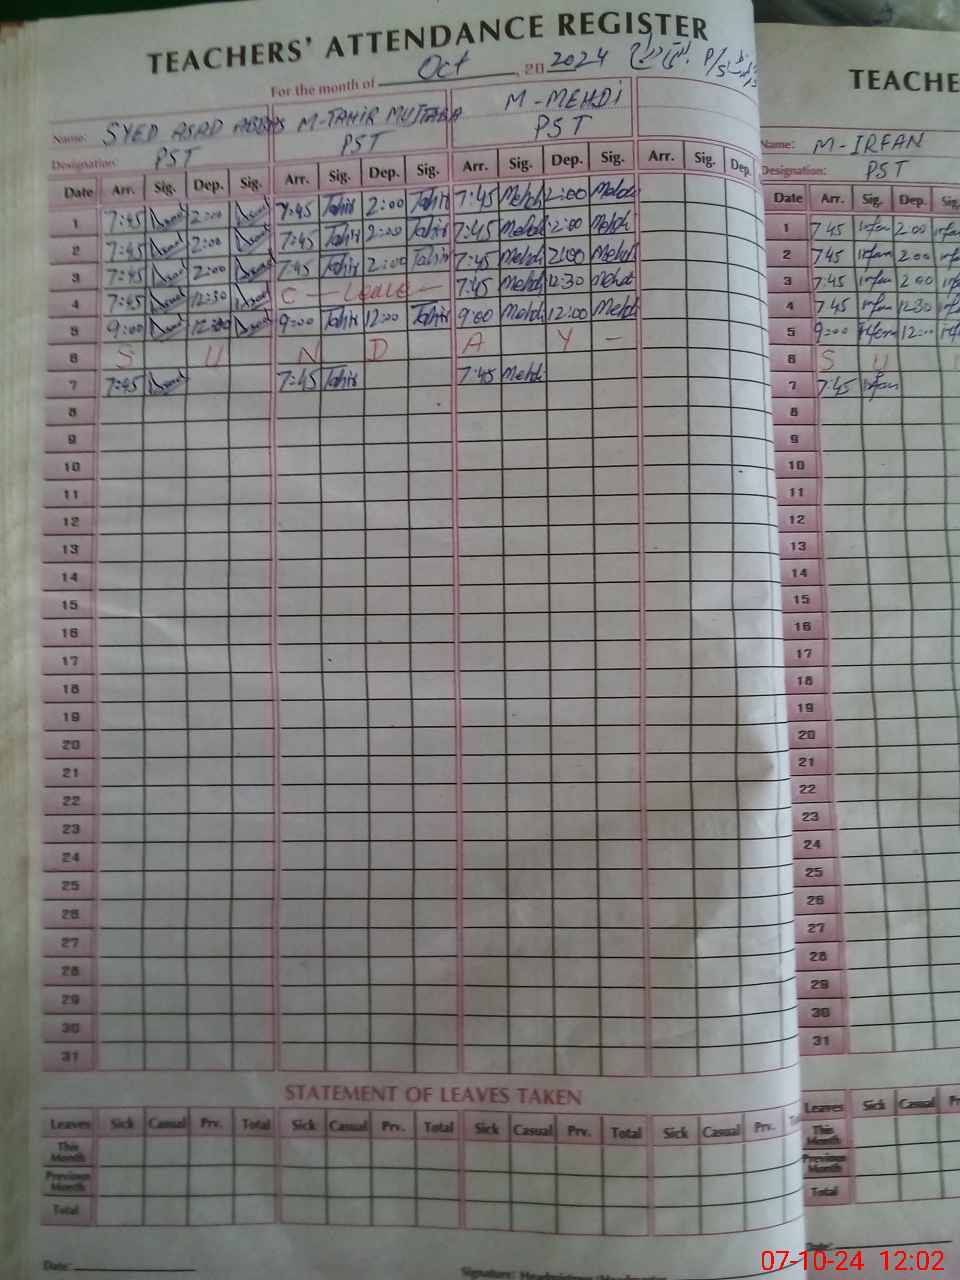 TEACHERS' ATTENDANCE REGISTER
For the month of Oct, 20 2024
Name: SYED ASAD ABBAS M-TAHIR MUJTABA M-MEHDI
Designation: PST PST PST
Date Arr. Sig. Dep. Sig. Arr. Sig. Dep. Sig. Arr. Sig. Dep. Sig. Arr. Sig. Dep.
1 7:45 Asad 2:00 Asad 7:45 Tahir 2:00 Tahir 7:45 Mehdi 2:00 Mehdi
2 7:45 Asad 2:00 Asad 7:45 Tahir 2:00 Tahir 7:45 Mehdi 2:00 Mehdi
3 7:45 Asad 2:00 Asad 7:45 Tahir 2:00 Tahir 7:45 Mehdi 2:00 Mehdi
4 7:45 Asad 12:30 Asad C - Leave - 7:45 Mehdi 12:30 Mehdi
5 9:00 Asad 12:00 Asad 9:00 Tahir 12:00 Tahir 9:00 Mehdi 12:00 Mehdi
6 S U N D A Y -
7 7:45 Asad 7:45 Tahir 7:45 Mehdi
8
9
10
11
12
13
14
15
16
17
18
19
20
21
22
23
24
25
26
27
28
29
30
31
STATEMENT OF LEAVES TAKEN
Leaves Sick Casual Prv. Total Sick Casual Prv. Total Sick Casual Prv. Total Sick Casual Prv.
This Month
Previous Month
Total
Date:
Signature: Headmistress/Headmaster
TEACHE
Name: M-IRFAN
Designation: PST
Date Arr. Sig. Dep. Sig
1 7 45 irfan 2 00 irfa
2 7 45 irfan 2 00 irfa
3 7 45 irfan 2 00 irfa
4 7 45 irfan 12 30 irfa
5 9:00 irfan 12:00 irfa
6 S U
7 7:45 irfan
8
9
10
11
12
13
14
15
16
17
18
19
20
21
22
23
24
25
26
27
28
29
30
31
Leaves Sick Casual Pr
This Month
Previous Month
Total
Date:
07-10-24 12:02